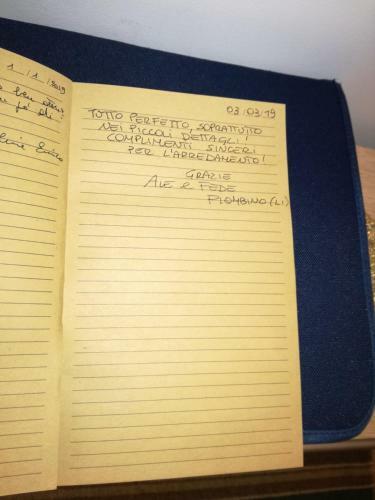 1/1/2019
03/03/19
TUTTO PERFETTO, SOPRATTUTTO
NEI PICCOLI DETTAGLI!
COMPLIMENTI SINCERI
PER L'ARREDAMENTO!
GRAZIE
ALE E FEDE
PIOMBINO (LI)